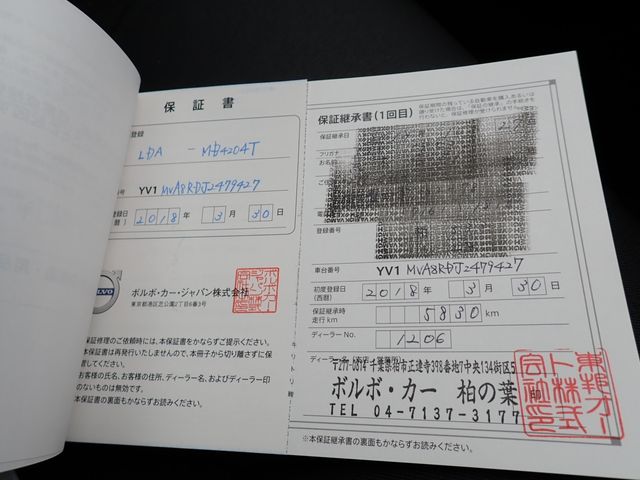 保証書
登録
LDA - MB4204T
番号 YV1 MVA8RDJ2479427
登録日 2018年 3月30日
暦)
ボルボ・カー・ジャパン株式会社
東京都港区芝公園2丁目6番3号
保証修理のご依頼時には、本保証書をかならずご提示ください。
本保証書は再発行いたしませんので、本冊子から切り離さずに保
管してください。
お客様の氏名、お客様の住所、ディーラー名、およびディーラー印
のないものは無効です。
本保証書の裏面もかならずお読みください。
キリトリ
保証継承書(1回目)
保証期間の残っている自動車を購入あるいは
譲り受けた場合は、「保証の継承」の手続きを
行わないと、保証修理が受けられません。
保証継承日
フリガナ
お名前
ご住
電
登録番号
車台番号 YV1 MVA8RDJ2479427
初度登録日 2018年 3月30日
(西暦)
保証継承時 5830 km
走行 km
ディーラー No. 1206
ディーラー名
〒277-0814 千葉県柏市正連寺398番地7中央134街区5
ボルボ・カー 柏の葉 印
TEL 04-7137-3177
東邦オー
ト株式
会社印
※本保証継承書の裏面もかならずお読みください。